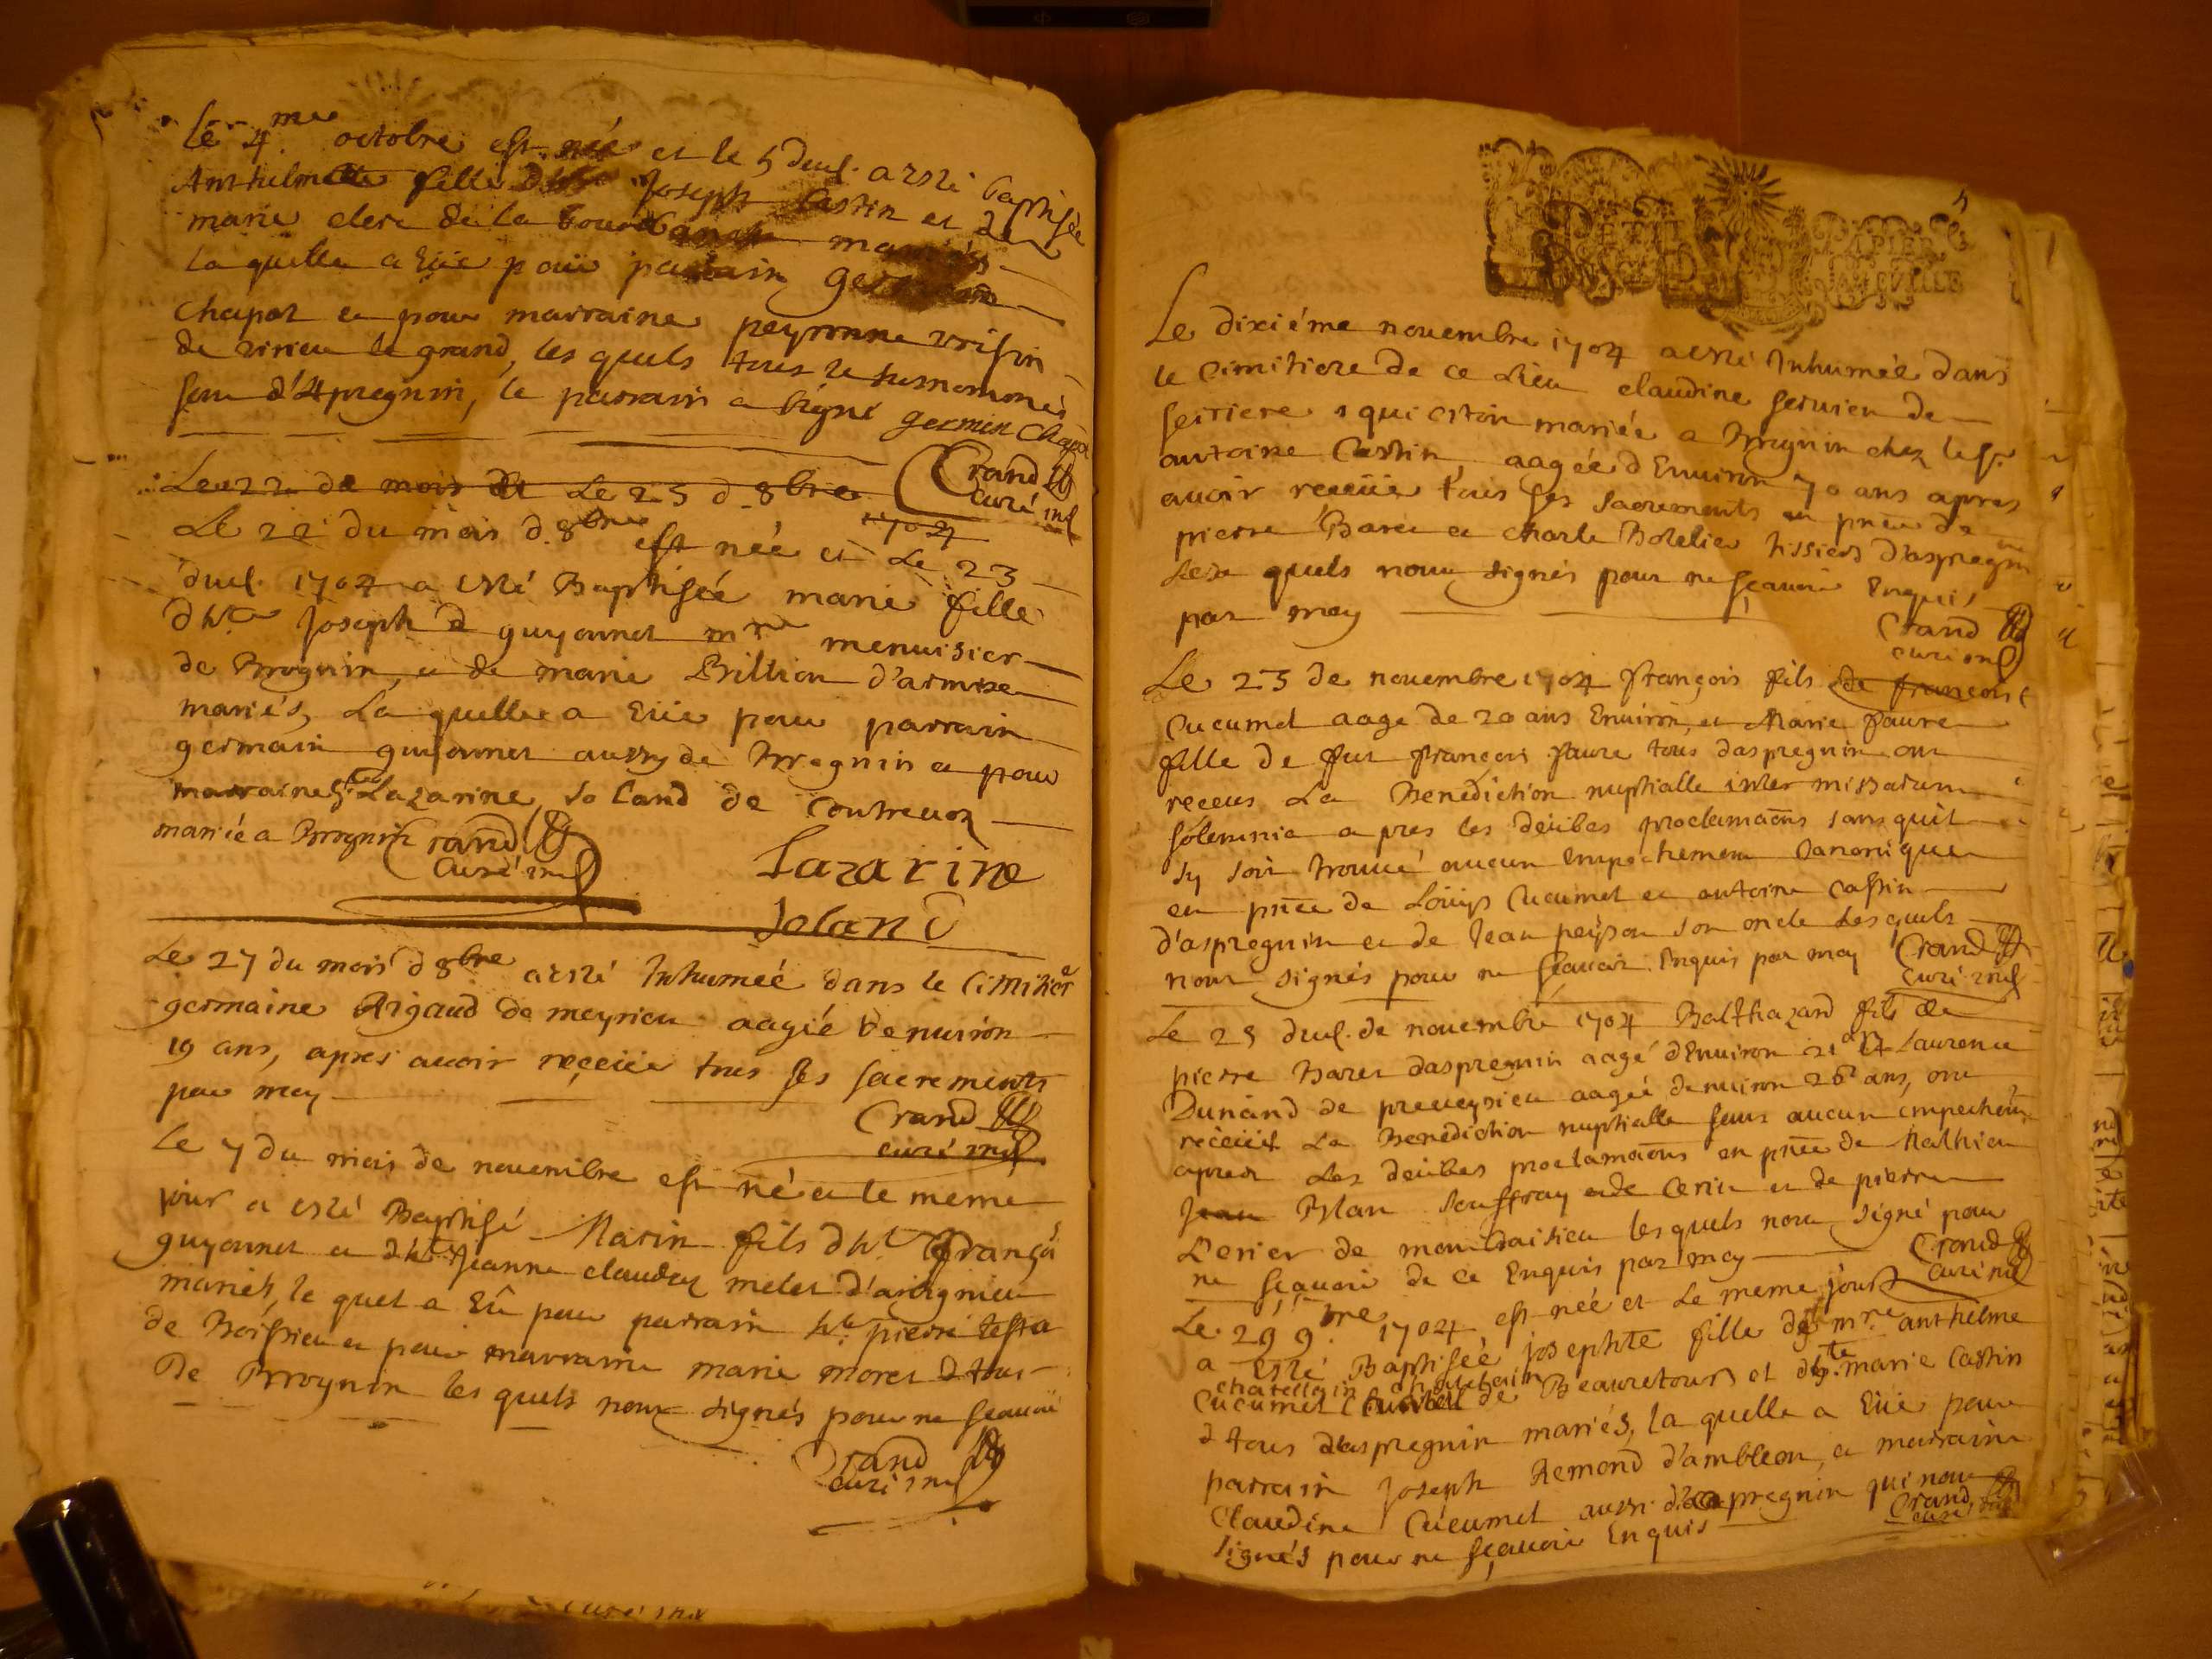 Le 4.me octobre est née et le 5 dud. a esté baptisée
Anthelmette fille Joseph Castin et de
marie clerc de la mariés
la quelle a Eüe pour parrain
chapot et pour marraine peyronne voisin
de virieu le grand, les quels tous le susnommés
sont d'Apregnin, le parrain a signé germin chapot
Crand
curé
Le 22 de mois de Le 25 d 8bre
Le 22 du mois d.8bre est née et Le 23 1704
dud. 1704 a esté Baptisée marie fille
d'ht Joseph guyonnet mre menuisier
de Brognin, et de marie Brillion d'armixe
mariés, La quelle a Eüe pour parrain
germain guyonnet aussy de Brognin et pour
marraine Lazarine Joland de Contrevoz
mariée a Brognin Crand
curé
Lazarine
Joland
Le 27 du mois d 8bre a esté Inhumeé dans le Cimitiere
germaine Rigaud de meyrieu aagié denuiron
19 ans, apres auoir reçeüe tous ses sacrements
par moy
Crand
curé
Le 7 du mois de novembre est né et le meme
jour a esté Baptisé Marin fils d'ht françs
guyonnet et d'hte Jeanne claudez melet d'arignieu
mariés, le quel a Eû pour parrain ht pierre testa
de Boissieu et pour marraine marie moret tous
De Brognin les quels nont signés pour ne scauoir
Crand
curé
5
PETIT PAPIER
Le dixiéme nouembre 1704 a esté Inhumée dans
le Cimitiere de ce Lieu claudine seruien de
serriere qui estoit mariée a Brognin chez le sr.
antoine Castin, aagée d'Enuiron 70 ans apres
auoir receüe tous ses sacrements en pnce de
pierre Baret et charle Botelier tissiers d'aspregnin
Les quels nont signés pour ne sçauoir Enquis
par moy
Crand
curé
Le 23 de nouembre 1704 françois fils de françois
Cucumet aage de 20 ans Enuiron, et Marie faure
fille de feu françois faure tous daspregnin ont
receus La Benediction nuptialle inter missarum
solemnia apres les deübes proclamaons sans quil
sy soit trouué aucun empechement Canonique
en pnce de Loüys Cucumet et antoine Castin
d'aspregnin et de Jean peyson son oncle Lesquels
nont signés pour ne sçauoir Enquis par moy Crand
curé
Le 25 dud. de nouembre 1704 Balthazard fils de
pierre Baret daspregnin aagé d'Enuiron 21 et Laurence
Dunand de preveysieu aagée denuiron 26 ans, ont
receüe La Benediction nuptialle sans aucun empechemt
apres Les deübes proclamaons en pnce de Mathieu
Jean Blan de Cerin et de pierre
Lerier de les quels nont signé pour
ne sçauoir de ce Enquis par moy Crand
curé
Le 29 9bre 1704 est née et Le meme jour
a Esté Baptisée josephte fille de mre anthelme
chatellain
Cucumet de Beauretour et marie Castin
tous daspregnin mariés, la quelle a Eüe pour
parrain Joseph Remond d'ambleon, et marraine
Claudine Cucumet aussi d'apregnin qui nont
signés pour ne sçauoir Enquis Crand
curé